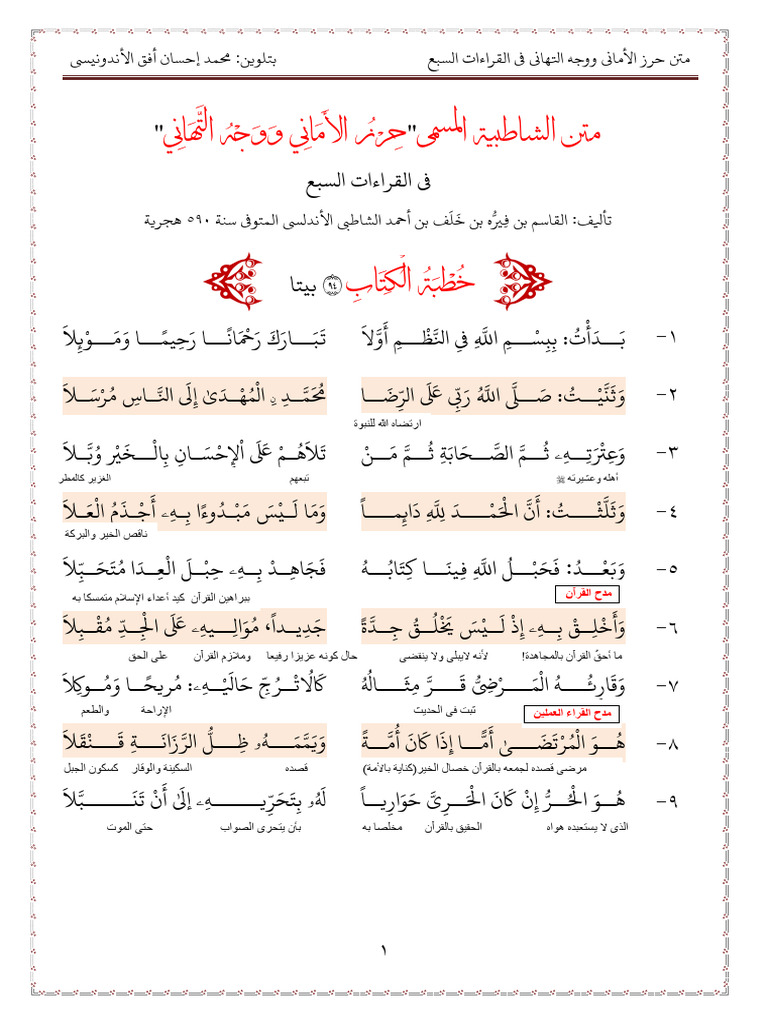 متن حرز الأمانى ووجه التهانى فى القراءات السبع بتلوين: محمد إحسان أفق الأندونيسى
متن الشاطبية المسمى"حِرْزُ الأَمَانِي وَوَجْهُ التَّهَانِي"
فى القراءات السبع
تأليف: القاسم بن فِيرُّه بن خَلَف بن أحمد الشاطبى الأندلسى المتوفى سنة ٥٩٠ هجرية
خُطْبَةُ الْكِتَابِ ٩٤ بيتا
١- بَـدَأْتُ: بِبِسْـمِ اللَّهِ فِي النَّظْـمِ أَوَّلاَ تَبَـارَكَ رَحْمَانًـا رَحِيمًـا وَمَـوْئِلاَ
٢- وَثَنَّيْـتُ: صَـلَّى اللَّهُ رَبِّى عَلَى الرِّضَـا مُحَمَّـدٍ ۣ الْمُهْـدَىٰ إِلَى النَّـاسِ مُرْسَـلاَ
ارتضاه الله للنبوة
٣- وَعِتْرَتِـهِۦ ثُـمَّ الصَّـحَابَةِ ثُـمَّ مَـنْ تَلاَهُـمْ عَلَى الْإِحْسَـانِ بِالْـخَيْرِ وُبَّـلاَ
أهله وعشيرته ﷺ تبعهم الغزير كالمطر
٤- وَثَلَّثْـتُ: أَنَّ الْحَمْـدَ لِلَّهِ دَايِمًـا وَمَا لَـيْسَ مَبْـدُوءًا بِـهِۦ أَجْـذَمُ الْعَـلاَ
ناقص الخير والبركة
٥- وَبَعْـدُ: فَحَبْـلُ اللَّهِ فِينَـا كِتَابُـهُ فَجَاهِـدْ بِـهِۦ حِبْـلَ الْعِـدَا مُتَحَـبِّلاَ
مدح القرآن ببراهين القرآن كيد أعداء الإسلام متمسكا به
٦- وَأَخْلِـقْ بِـهِۦ إِذْ لَـيْسَ يَخْلُـقُ جِـدَّةً جَدِيـداً، مُوَالِيـهِۦ عَلَى الْجِـدِّ مُقْـبِلاَ
ما أحقّ القرآن بالمجاهدة! لأنه لايبلى ولا ينقضى حال كونه عزيزا رفيعا وملازم القرآن على الحق
٧- وَقَارِئُـهُ الْمَـرْضِىُّ قَـرَّ مِثَـالُهُ كَالُاتْـرُجِّ حَالَيْـهِۦ: مُرِيحًـا وَمُـوكِلاَ
ثبت فى الحديث الإراحة والطعم
مدح القراء العملين
٨- هُـوَ الْمُرْتَضَـىٰ أَمًّـا إِذَا كَانَ أُمَّـةً وَيَمَّمَـهُۥ ظِـلُّ الرَّزَانَـةِ قَـنْقَلاَ
مرضى قصده لجمعه بالقرآن خصال الخير(كناية بالأمة) قصده السكينة والوقار كسكون الجبل
٩- هُـوَ الْحُـرُّ إِنْ كَانَ الْحَـرِىَّ حَوَارِيـاً لَهُۥ بِتَحَرِّيـهِۦ إِلَىٰ أَنْ تَنَـبَّلاَ
الذى لا يستعبده هواه الحقيق بالقرآن مخلصا به بأن يتحرى الصواب حتى الموت
١